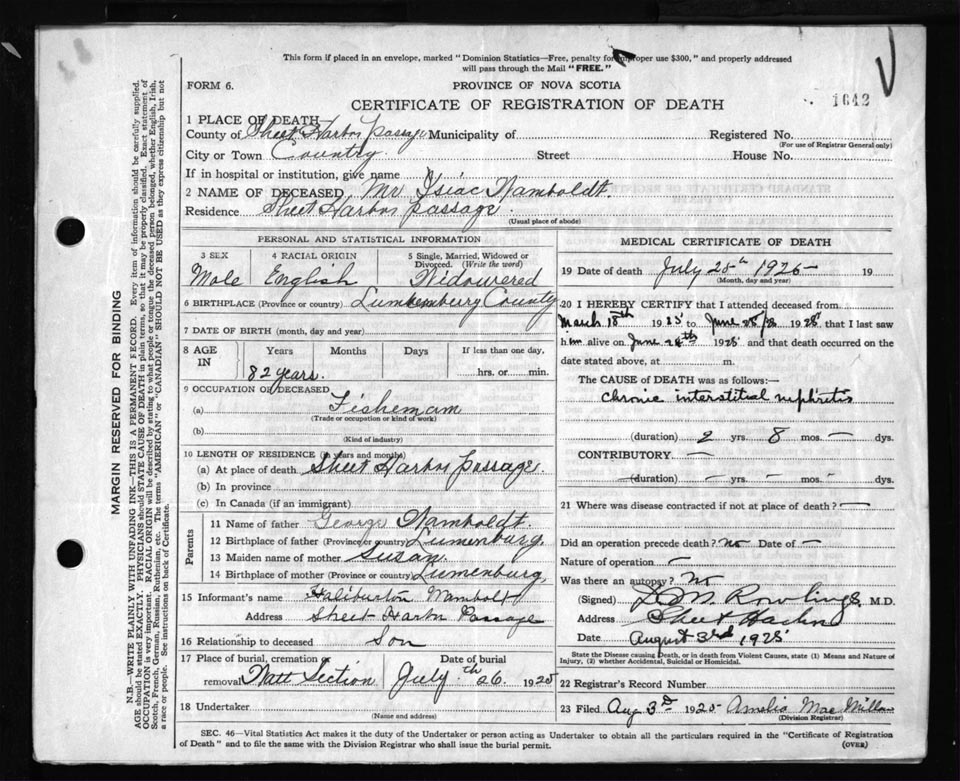 This form if placed in an envelope, marked "Dominion Statistics—Free, penalty for improper use $300," and properly addressed
will pass through the Mail "FREE."
FORM 6.
PROVINCE OF NOVA SCOTIA
CERTIFICATE OF REGISTRATION OF DEATH
1642
1 PLACE OF DEATH
County of Sheet Harbor Passage Municipality of
Registered No.
(For use of Registrar General only)
City or Town Country Street House No.
If in hospital or institution, give name
2 NAME OF DECEASED, Mr Isiac Namboldt.
Residence Sheet Harbor passage.
(Usual place of abode)
PERSONAL AND STATISTICAL INFORMATION
3 SEX 4 RACIAL ORIGIN 5 Single, Married, Widowed or
Divorced. (Write the word)
Male English Widowered
6 BIRTHPLACE (Province or country) Lunkemburg County
7 DATE OF BIRTH (month, day and year)
8 AGE IN Years Months Days If less than one day,
82 years. hrs. or min.
9 OCCUPATION OF DECEASED
(a) Fishemam
(Trade or occupation or kind of work)
(b)
(Kind of industry)
10 LENGTH OF RESIDENCE (in years and months)
(a) At place of death Sheet Harbor Passage
(b) In province
(c) In Canada (if an immigrant)
Parents
11 Name of father George Namboldt.
12 Birthplace of father (Province or country) Lumenburg
13 Maiden name of mother Susan
14 Birthplace of mother (Province or country) Lumenburg
15 Informant's name Haliburton Mambolt
Address Sheet Harbor Passage
16 Relationship to deceased Son
17 Place of burial, cremation or removal Watt Section
Date of burial July th 26 1925
18 Undertaker
(Name and address)
MEDICAL CERTIFICATE OF DEATH
19 Date of death July 25th 1925 19
(Month, day and year)
20 I HEREBY CERTIFY that I attended deceased from
March 18th 1925 to June 1925 that I last saw
him alive on June 24th 1925 and that death occurred on the
date stated above, at m.
The CAUSE of DEATH was as follows:—
Chronic interstitial nephritis
(duration) 2 yrs. 8 mos. — dys.
CONTRIBUTORY. —
(duration) yrs. mos. dys.
21 Where was disease contracted if not at place of death? —
Did an operation precede death? No Date of —
Nature of operation —
Was there an autopsy? No
(Signed) D. M. Rowlings M.D.
Address Sheet Harbor
Date August 3rd 1925
State the Disease causing Death, or in death from Violent Causes, state (1) Means and Nature of
Injury, (2) whether Accidental, Suicidal or Homicidal.
22 Registrar's Record Number
23 Filed Aug 3d 1925 Amelia Mac Millan
(Division Registrar)
SEC. 46—Vital Statistics Act makes it the duty of the Undertaker or person acting as Undertaker to obtain all the particulars required in the "Certificate of Registration
of Death" and to file the same with the Division Registrar who shall issue the burial permit.
(OVER)
MARGIN RESERVED FOR BINDING
N.B.—WRITE PLAINLY WITH UNFADING INK—THIS IS A PERMANENT RECORD. Every item of information should be carefully supplied.
AGE should be stated EXACTLY. PHYSICIANS should STATE CAUSE OF DEATH in plain terms, so that it may be properly classified. Exact statement of
OCCUPATION is very important. RACIAL ORIGIN will be described by stating to what people or tongue the deceased person belonged, whether English, Irish,
Scotch, French, German, Russian, Ruthenian, etc. The terms "AMERICAN" or "CANADIAN" SHOULD NOT BE USED as they express citizenship but not
a race or people. See instructions on back of Certificate.